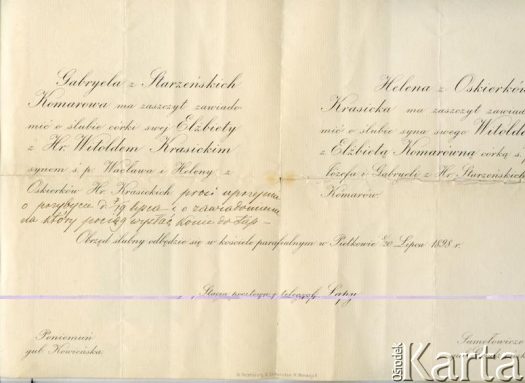 Gabryela z Starzeńskich
Komarowa ma zaszczyt zawiado-
mić o ślubie córki swej Elżbiety
z Hr. Witoldem Krasickim
synem ś. p. Wacława i Heleny z
Oskierków Hr. Krasickich prosi uprzejmie
o przybycie d. 7/19 lipca i o zawiadomienie
na który pociąg wysłać konie do Łap –
Helena z Oskierków
Krasicka ma zaszczyt zawiado
mić o ślubie syna swego Witolda
z Elżbietą Komarówną córką ś.
Józefa i Gabryeli z Hr. Starzeńskich
Komarów.
Obrzęd ślubny odbędzie się w kościele parafialnym w Pietkowie 8/20 Lipca 1898 r.
Stacia pocztowa i telegraf. Łapy
Poniemuń
gub. Kowieńska
Ośrodek
Karta
www.karta.org.pl